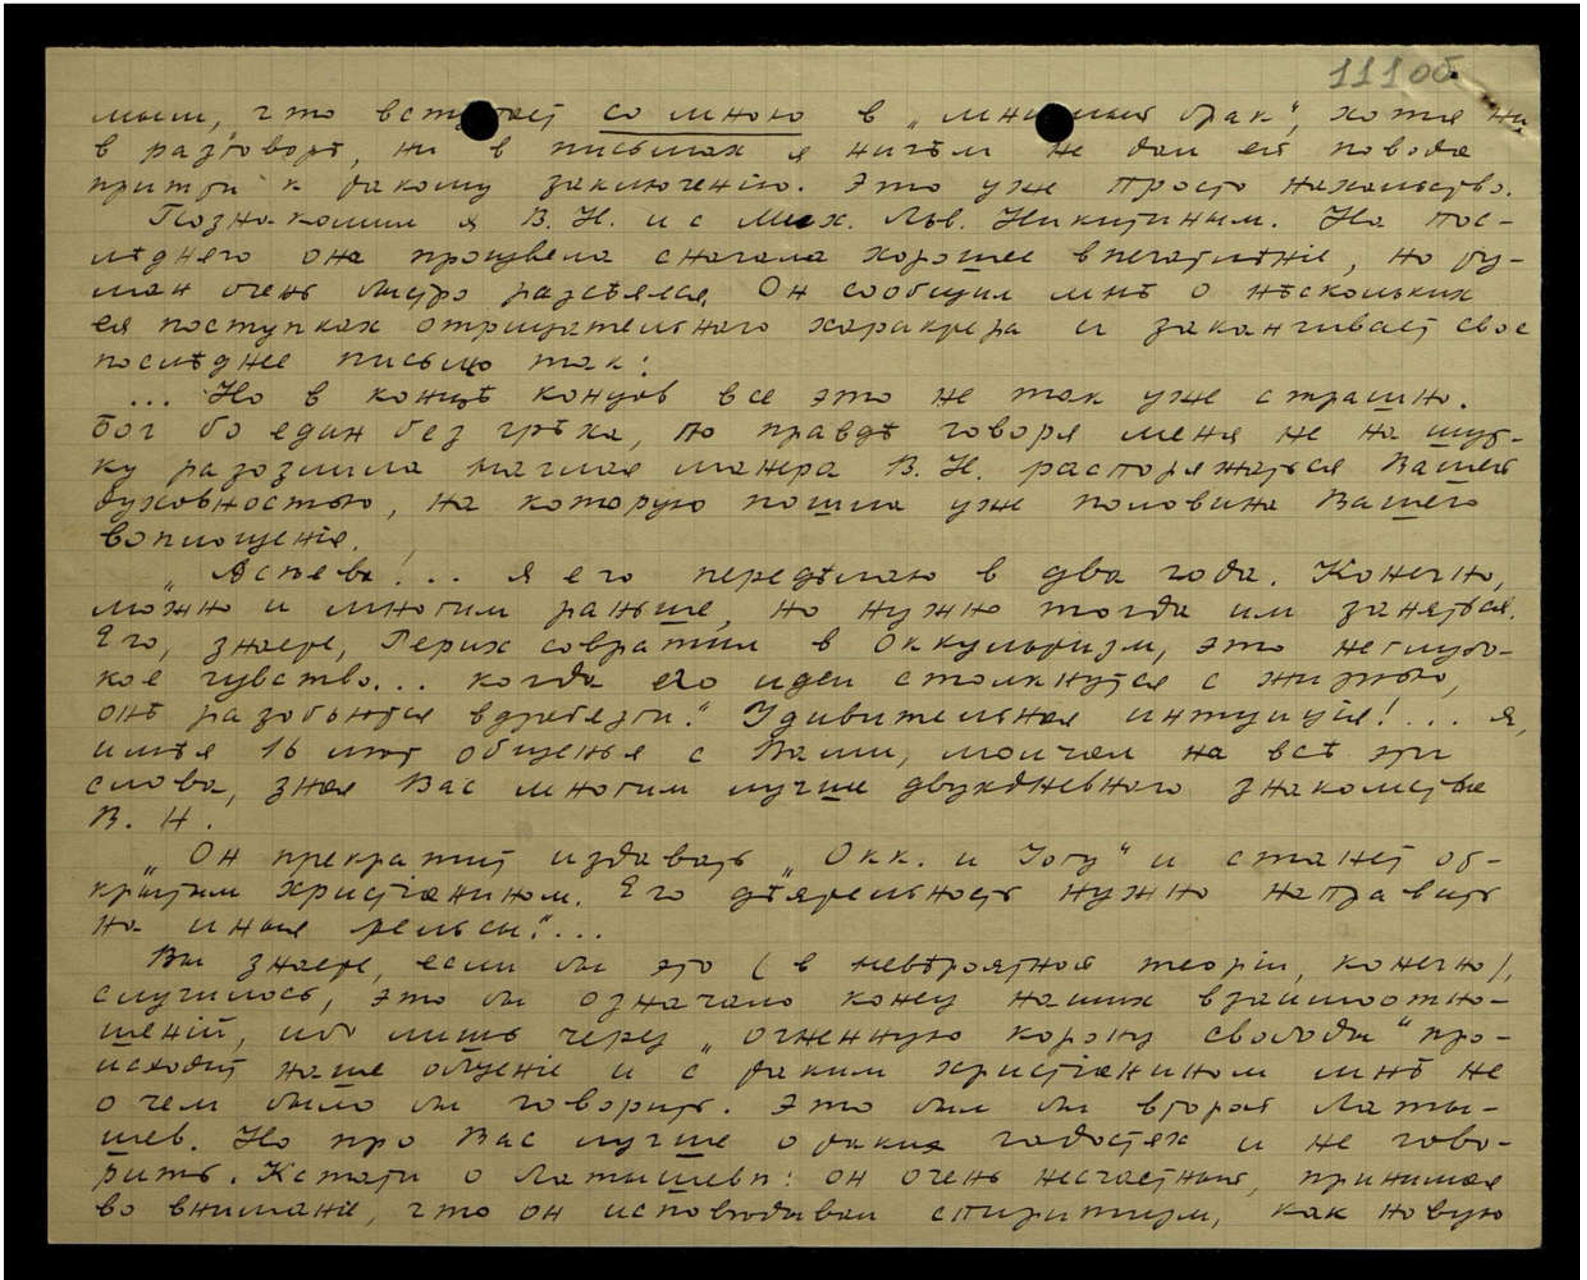 111 об.
мым, что вступает со мною в „мнимый брак“, хотя ни
в разговорѣ, ни в письмах я ничѣм не дал ей повода
притти к такому заключенію. Это уже просто нахальство.
Познакомил я В. Н. и с Мих. Льв. Никитиным. На пос-
лѣдняго она произвела сначала хорошее впечатлѣніе, но ту-
ман очень быстро разсѣялся. Он сообщил мнѣ о нѣскольких
ея поступках отрицательнаго характера и заканчивает свое
послѣднее письмо так:
... Но в концѣ концов все это не так уже страшно.
Бог бо един без грѣха, по правдѣ говоря меня не на шут-
ку разозлила наглая манера В. Н. распоряжаться Вашей
духовностью, на которую пошла уже половина Вашего
воплощенія.
„Асѣева!... я его передѣлаю в два года. Конечно,
можно и многим раньше, но нужно тогда им заняться.
Его, знаете, Рерих совратил в оккультизм, это неглубо-
кое чувство... когда его идеи столкнутся с жизнью,
онѣ разобьются вдребезги.“ Удивительная интуиція!... я,
имѣя 16 лѣт общенья с Вами, молчал на всѣ эти
слова, зная Вас многим лучше двухдневнаго знакомства
В. Н.
„Он прекратит издавать „Окк. и Йогу“ и станет от-
крытым христіанином. Его дѣятельность нужно направить
на иные рельсы.“...
Вы знаете, если бы это (в невѣроятной теоріи, конечно),
случилось, это бы означало конец наших взаимоотно-
шеній, ибо лишь через „огненную корону свободы“ про-
исходит наше общеніе и с таким христіанином мнѣ не
о чем было бы говорить. Это был бы второй Латы-
шев. Но про Вас лучше о таких гадостях и не гово-
рить. Кстати о Латышевѣ: он очень несчастный, принимая
во вниманіе, что он исповѣдывал спиритизм, как новую